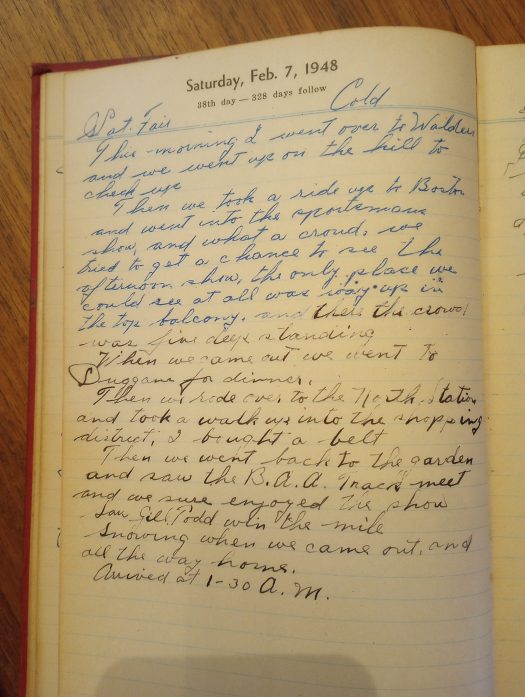 Saturday, Feb. 7, 1948
38th day — 328 days follow
Sat. Fair Cold
This morning I went over to Waldens
and we went up on the hill to
check up
Then we took a ride up to Boston
and went into the sportsmans
show, and what a crowd, we
tried to get a chance to see the
afternoon show, the only place we
could see at all was way up in
the top balcony. and there the crowd
was five deep standing
When we came out we went to
Duggans for dinner.
Then we rode over to the North Station
and took a walk up into the shopping
district, I bought a belt
Then we went back to the garden
and saw the B.A.A. Track meet
and we sure enjoyed the show
Saw Gill Todd win the mile
Snowing when we came out, and
all the way home.
Arived at 1-30 A.M.